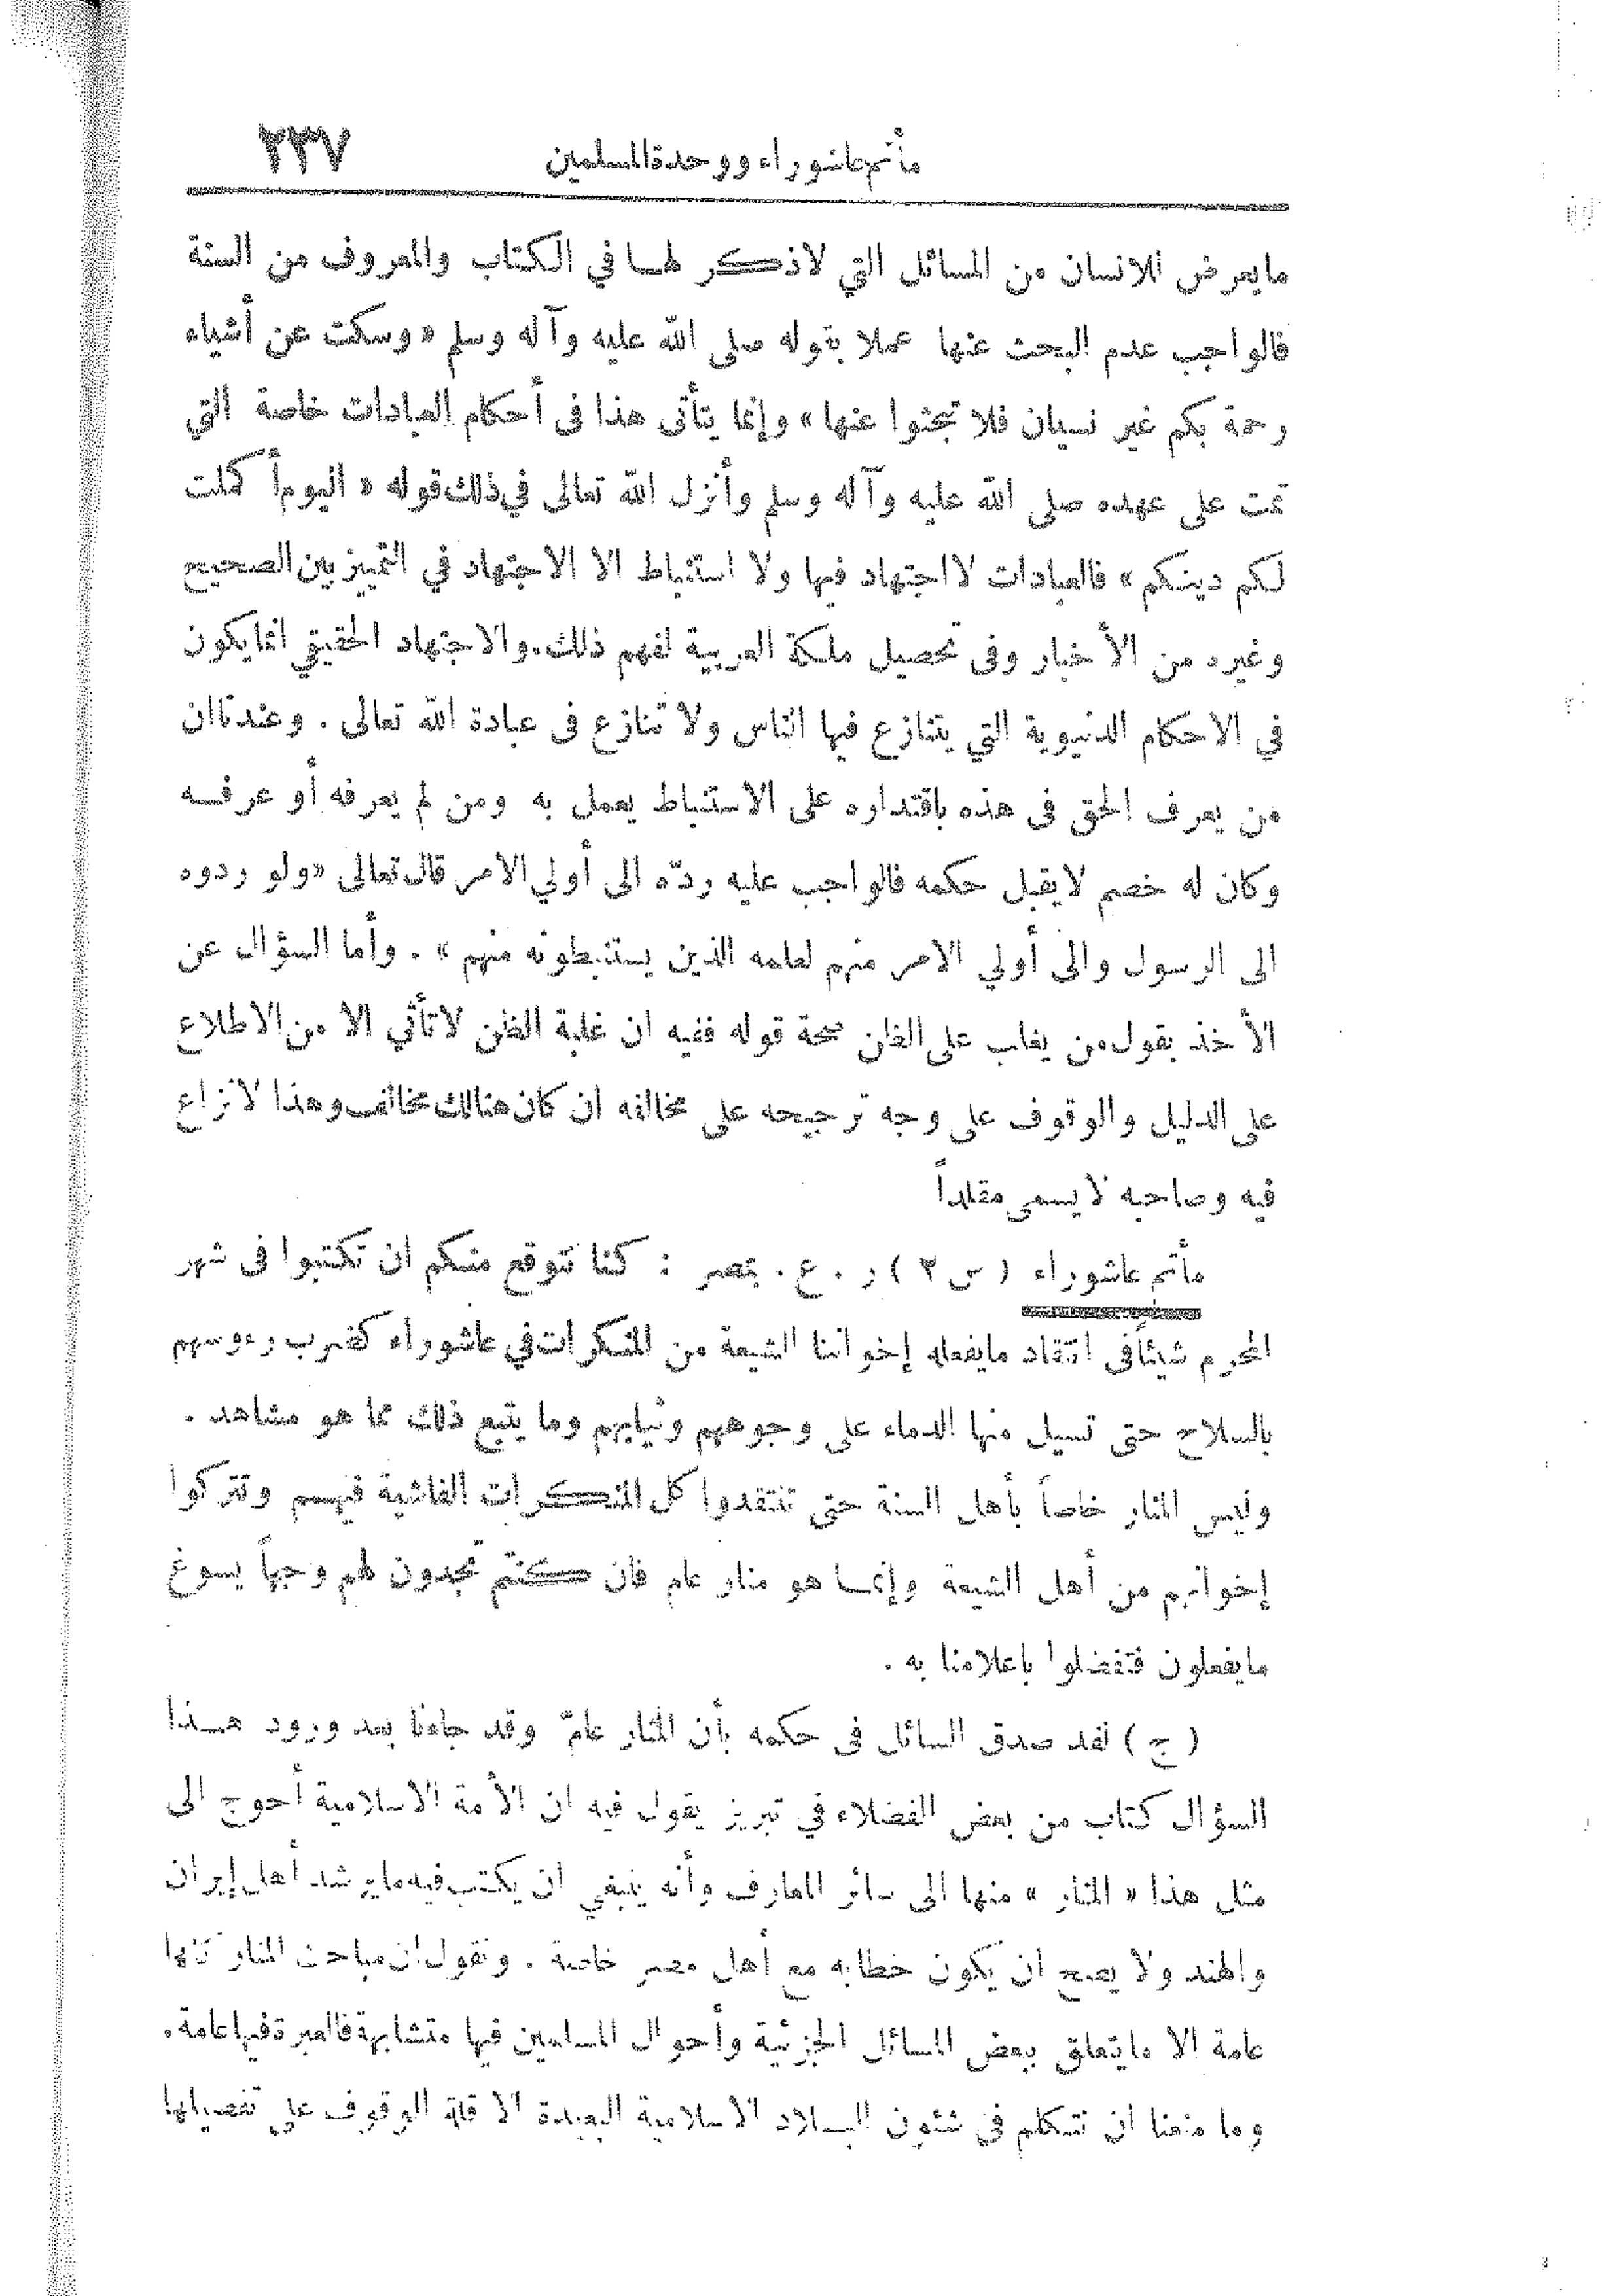 مأتم عاشوراء ووحدة المسلمين ٢٣٧
مايعرض للانسان من المسائل التي لاذكر لها في الكتاب والمعروف من السنة
فالواجب عدم البحث عنها عملا بقوله صلى الله عليه وآله وسلم « وسكت عن أشياء
رحمة بكم غير نسيان فلا تبحثوا عنها » وإنما يتأتى هذا فى أحكام العبادات خاصة التي
تمت على عهده صلى الله عليه وآله وسلم وأنزل الله تعالى في ذلك قوله « اليوم أكملت
لكم دينكم » فالعبادات لا اجتهاد فيها ولا استنباط الا الاجتهاد في التمييز بين الصحيح
وغيره من الأخبار وفى تحصيل ملكة العربية لفهم ذلك. والاجتهاد الحقيقي انما يكون
في الاحكام الدنيوية التي يتنازع فيها الناس ولا تنازع فى عبادة الله تعالى . وعندنا ان
من يعرف الحق فى هذه باقتداره على الاستنباط يعمل به ومن لم يعرفه أو عرفه
وكان له خصم لايقبل حكمه فالواجب عليه ردّه الى أولي الامر قال تعالى «ولو ردوه
الى الرسول والى أولي الامر منهم لعلمه الذين يستنبطونه منهم » . وأما السؤال عن
الأخذ بقول من يغلب على الظن صحة قوله ففيه ان غلبة الظن لاتأتي الا من الاطلاع
على الدليل والوقوف على وجه ترجيحه على مخالفه ان كان هنالك مخالف وهذا لانزاع
فيه وصاحبه لايسمى مقلداً
مأتم عاشوراء ( س ٢ ) ر . ع . بمصر : كنا نتوقع منكم ان تكتبوا فى شهر
المحرم شيئا فى انتقاد مايفعله إخواننا الشيعة من المنكرات في عاشوراء كضرب رءوسهم
بالسلاح حتى تسيل منها الدماء على وجوههم وثيابهم وما يتبع ذلك مما هو مشاهد .
وليس المنار خاصاً بأهل السنة حتى تنتقدوا كل المنكرات الفاشية فيهم وتتركوا
إخوانهم من أهل الشيعة وإنما هو منار عام فان كنتم تجدون لهم وجهاً يسوغ
مايفعلون فتفضلوا باعلامنا به .
( ج ) لقد صدق السائل فى حكمه بأن المنار عامّ وقد جاءنا بعد ورود هذا
السؤال كتاب من بعض الفضلاء في تبريز يقول فيه ان الأمة الاسلامية أحوج الى
مثل هذا « المنار » منها الى سائر المعارف وأنه ينبغي ان يكتب فيه مايرشد أهل إيران
والهند ولا يصح ان يكون خطابه مع أهل مصر خاصة . ونقول ان مباحث المنار كلها
عامة الا مايتعلق ببعض المسائل الجزئية وأحوال المسلمين فيها متشابهة فالعبرة فيها عامة.
وما منعنا ان نتكلم فى شئون البلاد الاسلامية البعيدة الا قلة الوقوف على تفصيلها